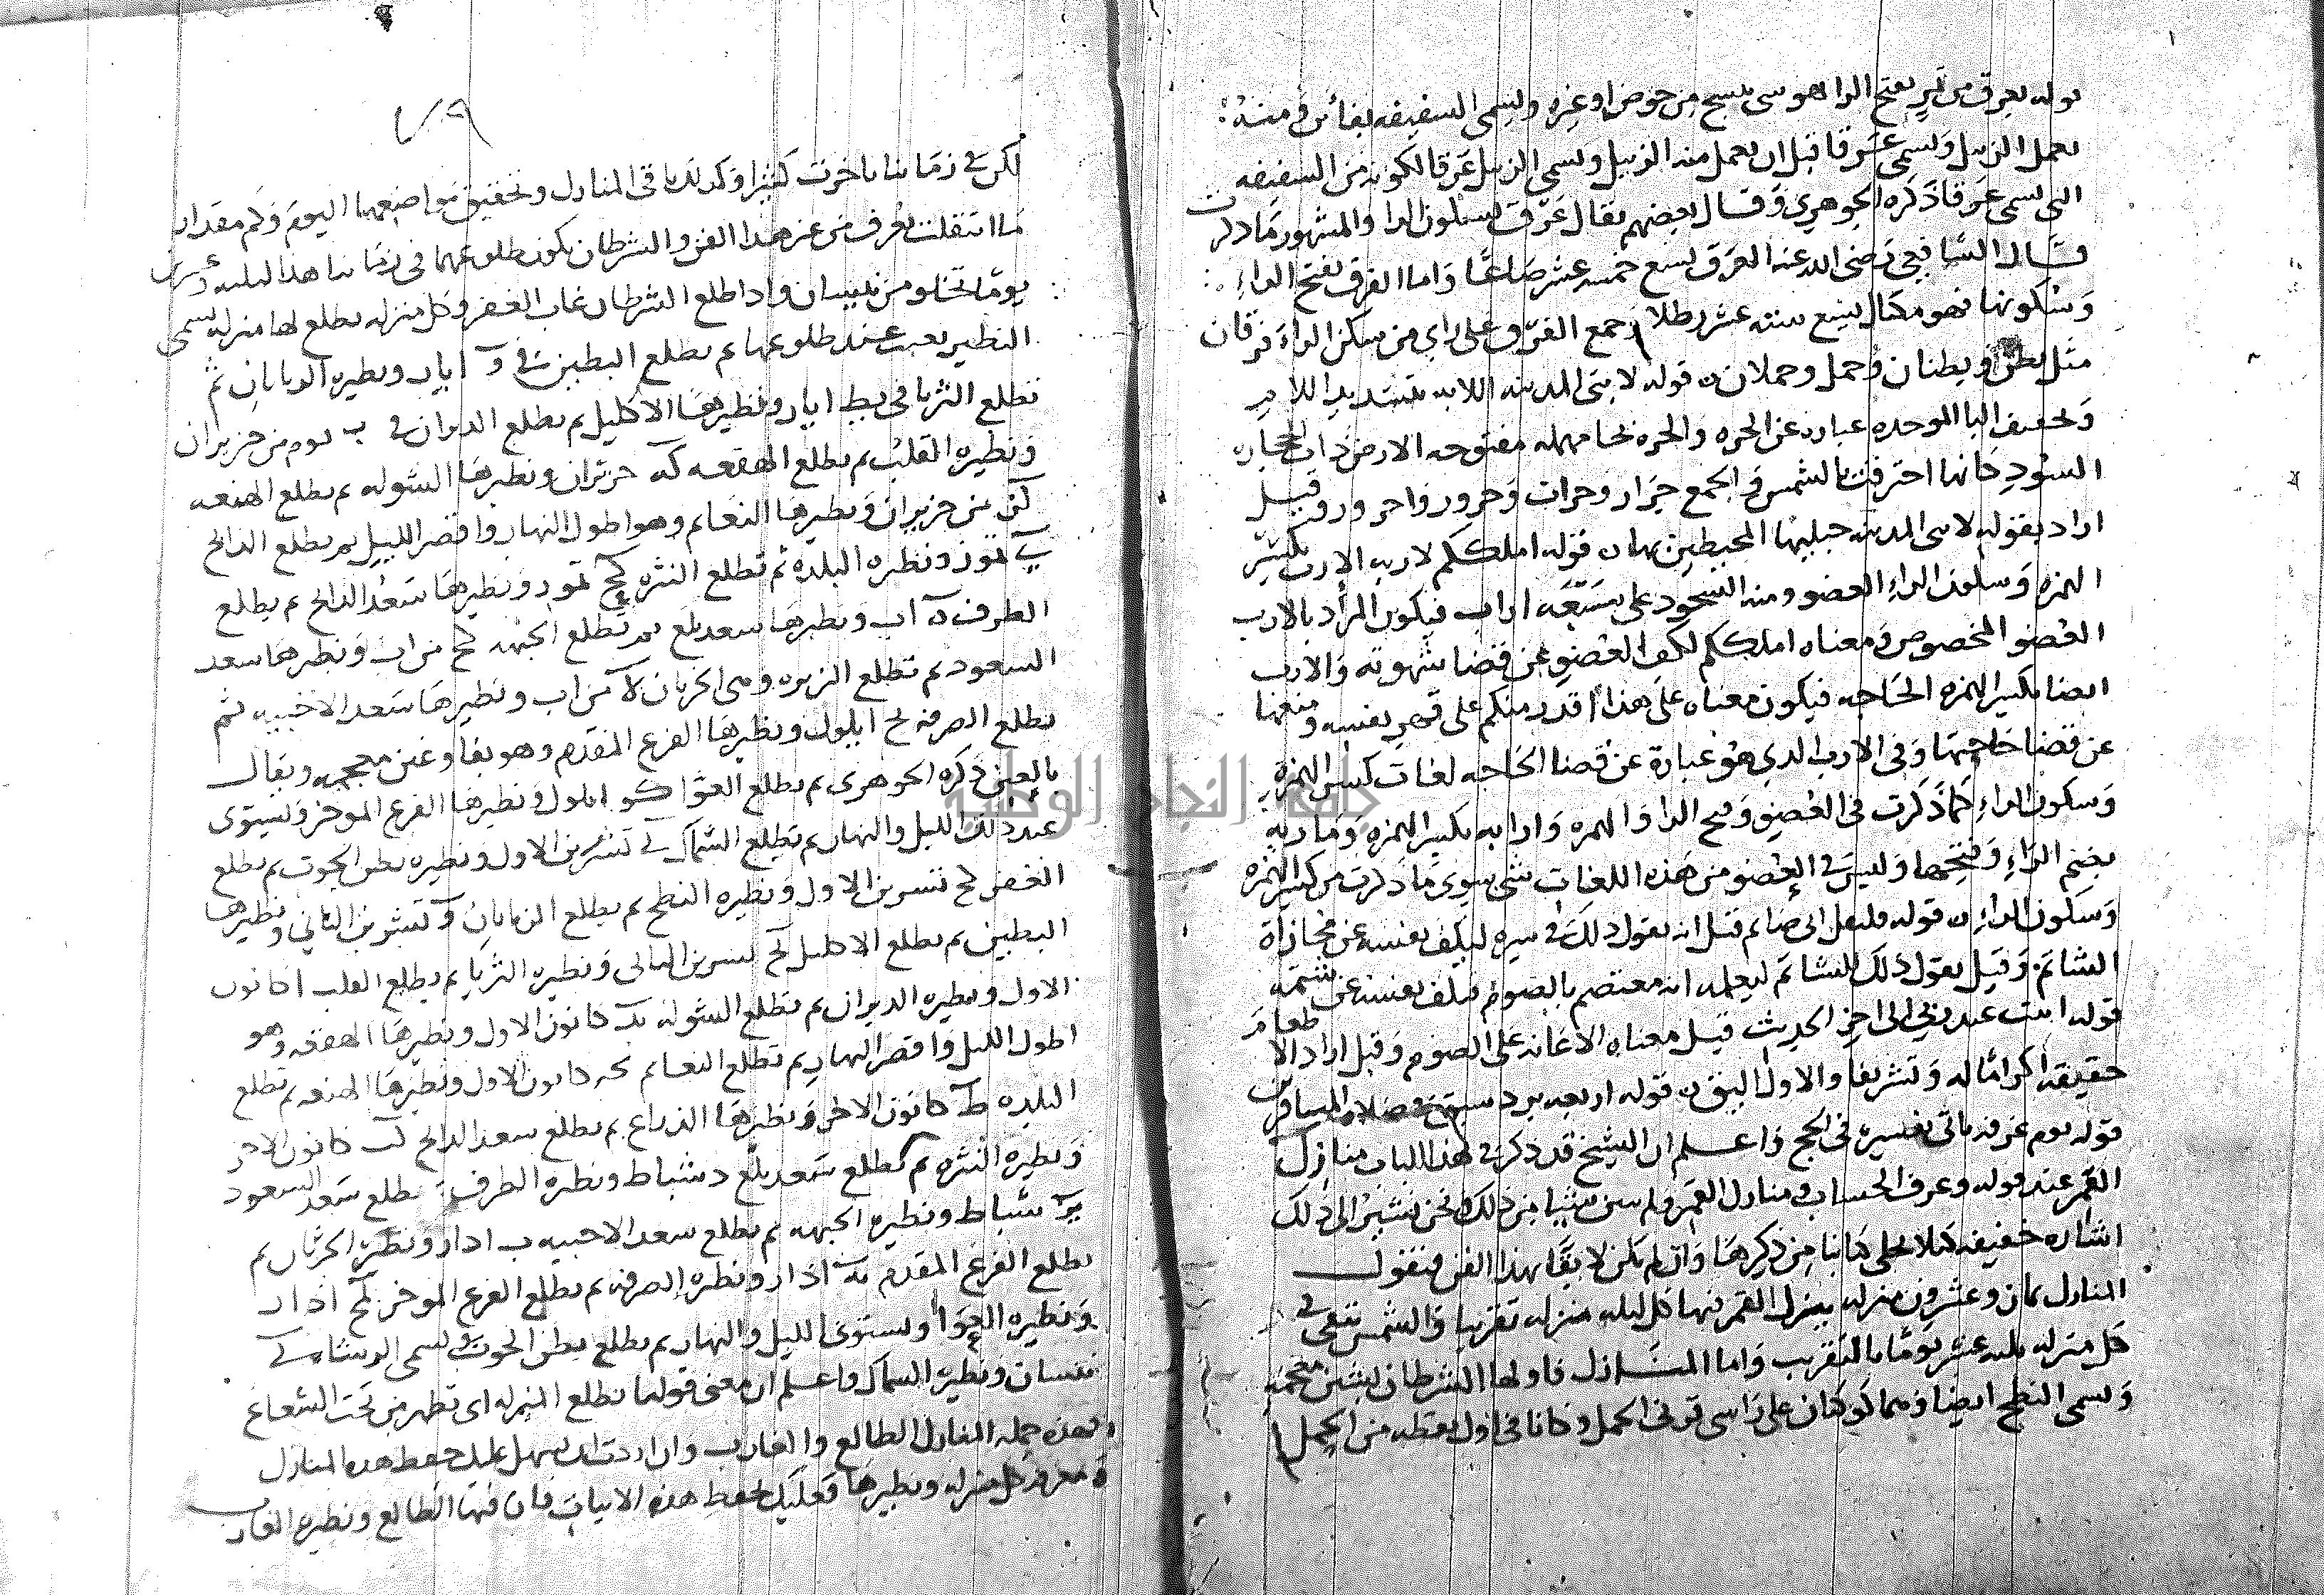 قوله بعرق من تمر بفتح الرا هو شى ينسج من خوص او غيره ويسمى السفيفه بفائين ومنه
يعمل الزنبيل ويسمى عرقا قبل ان يعمل منه الزنبيل ويسمى الزنبيل عرقا لكونه من السفيفه
التى تسمى عرقا ذكره الجوهري وقال بعضهم يقال عرق بسكون الرا والمشهور ما ذكرت
قال الشافعي رضى الله عنه العرق يسع خمسه عشر صاعا واما الفرق بفتح الراء
وسكونها فهو مكيال يسع سته عشر رطلا وجمع الفرق على راي من سكن الراء فرقان
مثل بطن وبطنان وحمل وحملان قوله لابتى المدينه اللابه بتشديد اللام
وتخفيف البا الموحده عباره عن الحره والحره بحا مهمله مفتوحه الارض ذات الحجاره
السود كانها احترقت بالشمس والجمع حرار وحرات وحرور واحرور وقيل
اراد بقوله لابتى المدينه جبليها المحيطين بها قوله املككم لاربه الارب بكسر
الهمزه وسكون الراء العضو ومنه السجود على سبعه اراب فيكون المراد بالارب
العضو المخصوص ومعناه املككم لكف العضو عن قضا شهوته والارب
ايضا بكسر الهمزه الحاجه فيكون معناه على هذا اقدر منكم على قهر نفسه ومنعها
عن قضا حاجتها وفى الارب الذي هو عبارة عن قضا الحاجه لغات كسر الهمزه
وسكون الراء كما ذكرت فى العضو وفتح الرا والهمزه وارابه بكسر الهمزه وماربه
بضم الراء وفتحها وليس فى العضو من هذه اللغات شى سوى ما ذكرت من كسر الهمزه
وسكون الراء قوله فليقل انى صائم قيل انه يقول ذلك فى سره ليكف نفسه عن مجازاة
الشاتم وقيل يقول ذلك للشاتم ليعلمه انه معتصم بالصوم فيكف نفسه عن شتمه
قوله ابيت عند ربي الى اخر الحديث قيل معناه الاعانه على الصوم وقيل اراد الاطعام
حقيقه اكراما له وتشريفا والاول اليق قوله اربعه برد سبق فى صلاة المسافرين
قوله يوم عرفه ياتى تفسيره فى الحج واعلم ان الشيخ قد ذكر فى هذا الباب منازل
القمر عند قوله وعرف الحساب ومنازل القمر ولم يبين شيا من ذلك ونحن نشير الى ذلك
اشاره خفيفه لئلا يخلى كتابنا من ذكرها وان لم يكن لايقا بهذا الفن فنقول
المنازل ثمان وعشرون منزله ينزل القمر فيها كل ليله منزله تقريبا والشمس تبقى فى
كل منزله ثلثه عشر يوما بالتقريب واما المنازل فاولها الشرطان بشين معجمه
ويسمى النطح ايضا وهما كوكبان على راسى قرنى الحمل وكانا فى اول نقطه من الحمل
٧٩
لكن فى زماننا تاخرت كثيرا وكذلك باقى المنازل وتحقيق مواضعها اليوم وكم مقدار
ما انتقلت يعرف من غير هذا الفن والشرطان يكون طلوعهما فى زماننا هذا لثلثه وعشرين
يوما تخلو من نيسان واذا طلع الشرطان غاب الغفر وكل منزله يطلع لها منزله تسمى
النظير يغيب عند طلوعها ثم يطلع البطين فى و ايار ونظيره الزبانان ثم
تطلع الثريا فى يط ايار ونظيرها الاكليل ثم يطلع الدبران فى ب يوم من حزيران
ونظيره القلب ثم يطلع الهقعه يه حزيران ونظيرها الشوله ثم يطلع الهنعه
كح من حزيران ونظيرها النعايم وهو اطول النهار واقصر الليل ثم يطلع الذراع
تموز ونظيره البلده ثم تطلع النثره كج تموز ونظيرها سعد الذابح ثم يطلع
الطرف ه آب ونظيرها سعد بلع ثم تطلع الجبهه يح من اب ونظيرها سعد
السعود ثم تطلع الزبره وهى الخرتان لا من اب ونظيرها سعد الاخبيه ثم
تطلع الصرفه يج ايلول ونظيرها الفرع المقدم وهو بفا وغين معجمه ويقال
بالعين ذكره الجوهرى ثم يطلع العوا كو ايلول ونظيرها الفرع الموخر ويستوى
عند ذلك الليل والنهار ثم يطلع السماك تشرين الاول ونظيره بطن الحوت ثم يطلع
الغفر تشرين الاول ونظيره النطح ثم يطلع الزبانان و تشرين الثاني ونظيرها
البطين ثم يطلع الاكليل تشرين الثانى ونظيره الثريا ثم يطلع القلب ا كانون
الاول ونظيره الدبران ثم تطلع الشوله يد كانون الاول ونظيرها الهقعه وهو
اطول الليل واقصر النهار ثم تطلع النعايم كانون الاول ونظيرها الهنعه ثم تطلع
البلده ط كانون الاخر ونظيرها الذراع ثم يطلع سعد الذابح كب كانون الاخر
ونظيره النثره ثم يطلع سعد بلع د شباط ونظيره الطرف ثم يطلع سعد السعود
يز شباط ونظيره الجبهه ثم يطلع سعد الاخبيه ب ادار ونظيره الخرتان ثم
يطلع الفرع المقدم يه اذار ونظيره الصرفه ثم يطلع الفرع الموخر كح اذار
ونظيره العوا ويستوى الليل والنهار ثم يطلع بطن الحوت ويسمى الرشا فى
نيسان ونظيره السماك واعلم ان معنى قولنا تطلع المنزله اى تظهر من تحت الشعاع
وهذه جمله المنازل الطالع والغارب وان اردت ان يسهل عليك حفظ هذه المنازل
ومعرفه كل منزله ونظيرها فعليك بحفظ هذه الابيات فان فيها الطالع ونظيره الغارب
جامعة النجاح الوطنية